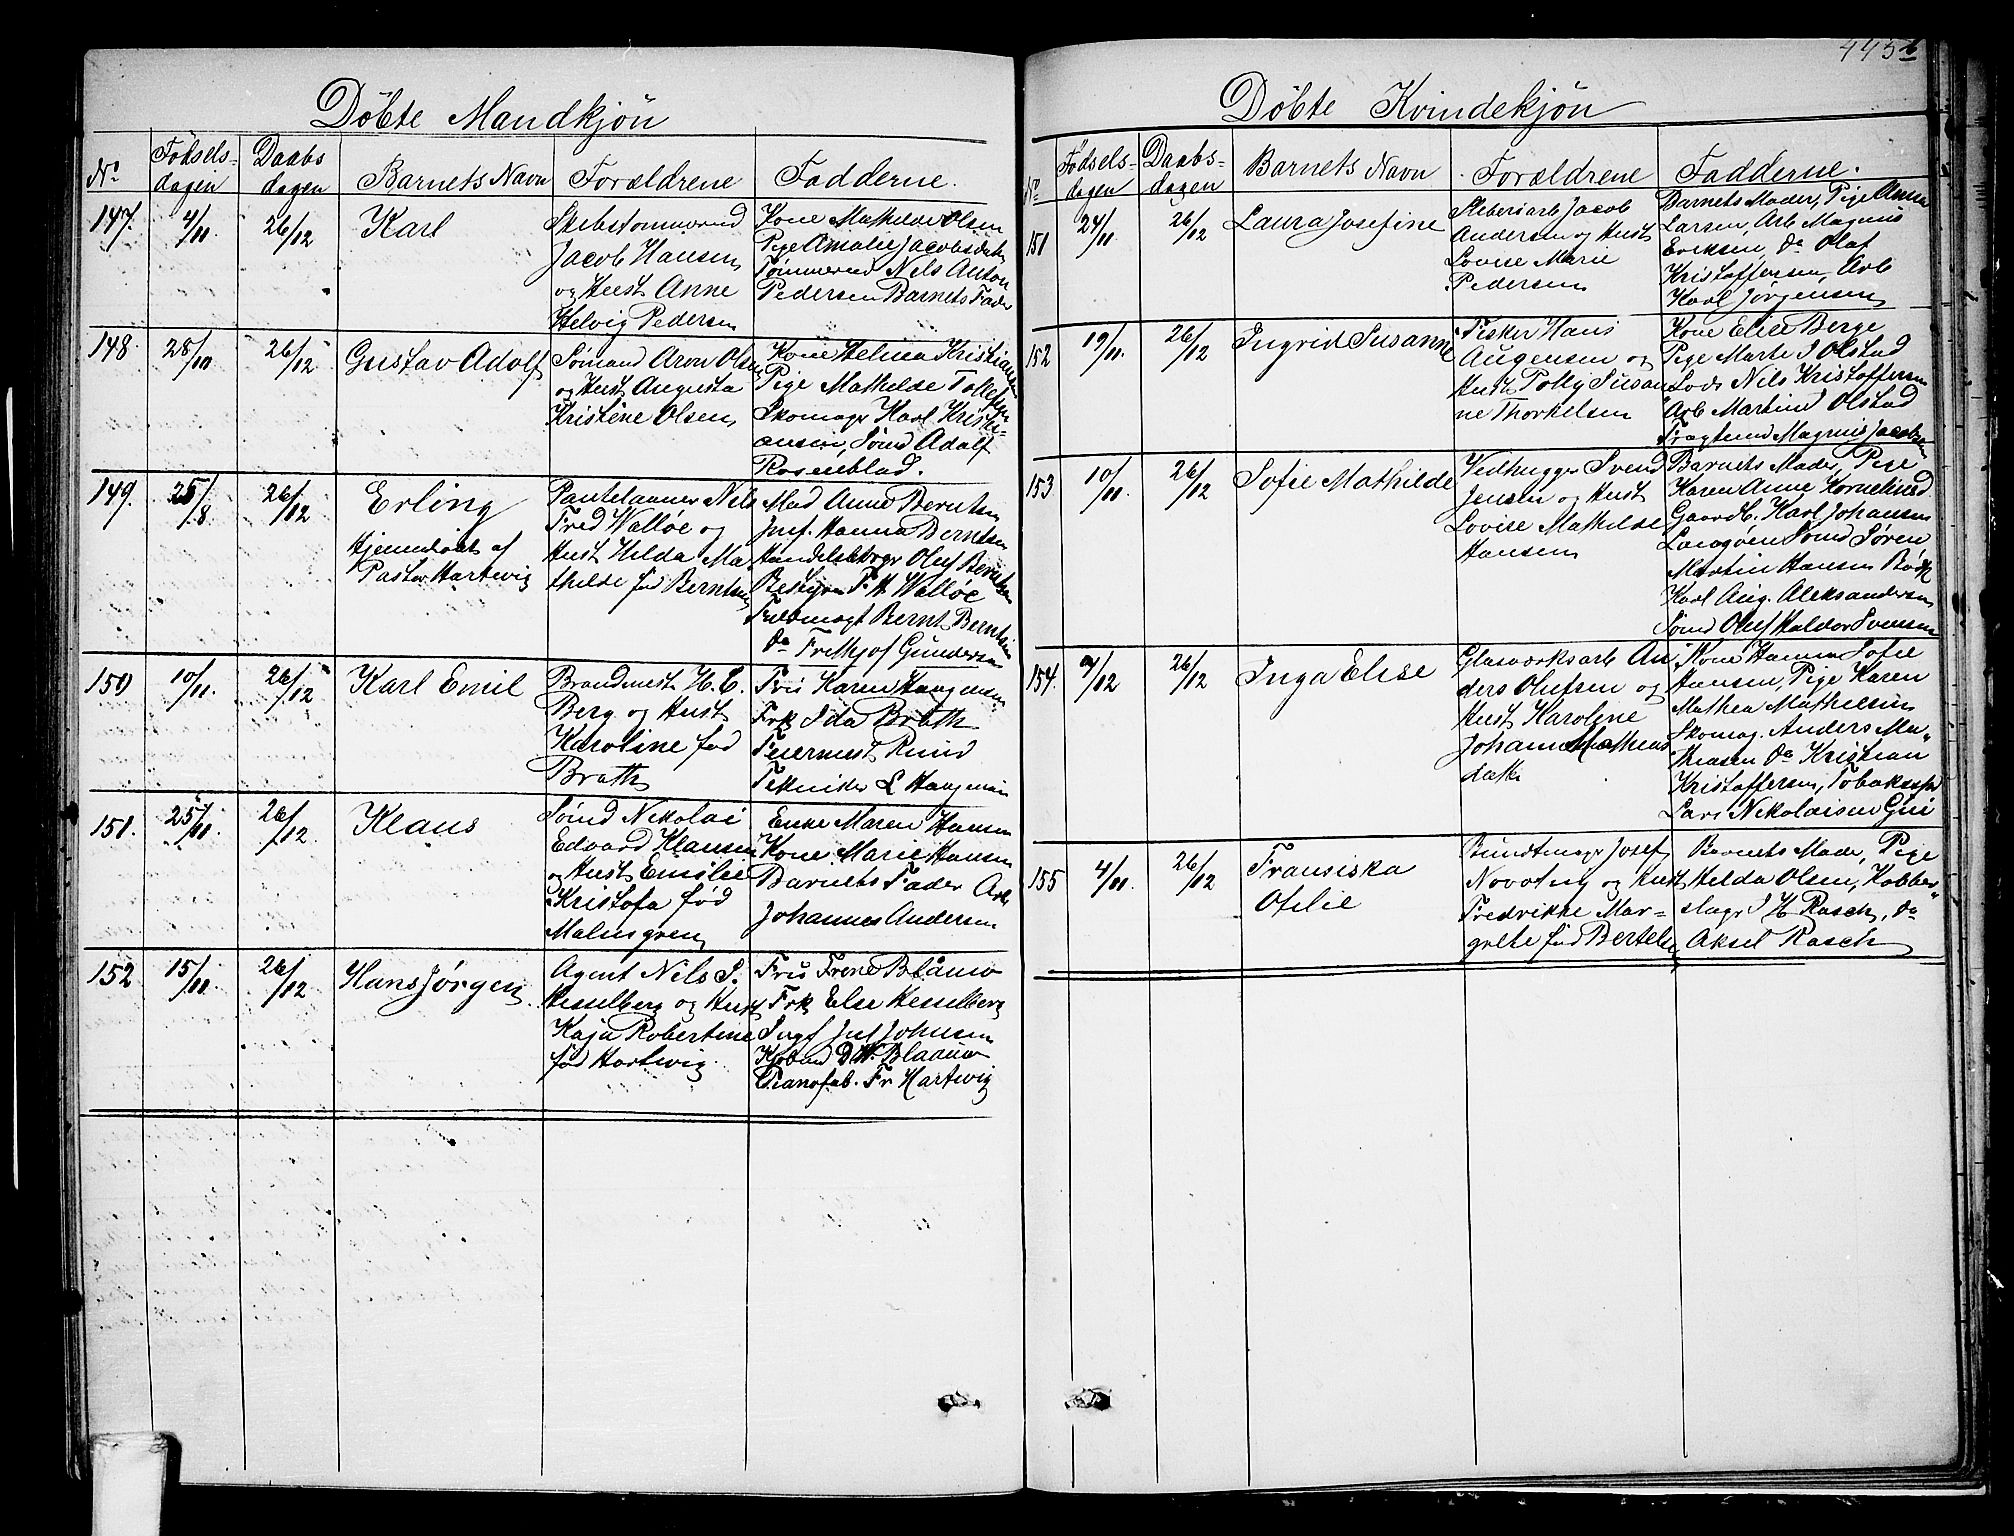 445 b
Döbte Mandkjön
No
Födsels-
dagen
Daabs
dagen
Barnets Navn
Forældrene
Fadderne.
147.
4/11
26/12
Karl
Skibstømmermd
Jacob Hansen
og Hust Anne
Helvig Pedersen
Kone Mathilde Olsen
Pige Amalie Jacobsdatr
Tømmermd Nils Anton
Pedersen Barnets Fader
148.
28/10
26/12
Gustav Adolf
Sömand Aron Olsen
og Hust Augusta
Kristine Olsen
Kone Helina Kristiansen
Pige Mathilde Tollefsen
Skomagr Karl Kristi-
ansen, Sömd Adolf
Rosenblad.
149.
25/8
26/12
Erling
Hjemmedöbt af
Pastor Hartwig
Pantelaaner Nils
Fred Wallöe og
Hust Hilda Ma
thilde fød Berntsen
Mad Anne Berntsen
Jnf. Hanna Berntsen
Handelsbetyr Oluf Berntsen
Bestyrer F. H. Wallöe
Berntsen
do Frithjof Gundersen
150
10/11.
26/12
Karl Emil
Brandmest H. C.
Berg og Hust
Karoline fød
Brath
Fru Karen Haagensen
Frk Ida Brath
Feiermest Rund
Tekniker L Haagensen
151.
25/11.
26/12.
Klaus
Sömd Nikolai
Edvard Klausen
og Hust Emilie
Kristofa fød
Malmgren
Enke Maren Hansen
Kone Marie Hansen
Barnets Fader Arb
Johannes Andersen
152
15/11
26/12
Hans Jørgen
Agent Nils S.
Hesselberg og Hust
Kaja Robertine
fød Hartwig.
Fru Irene Blauw
Frk Else Hesselberg
Johnsen
Kjöbmd D W. Blaauw
Pianofab. Fr Hartwig
Döbte Kvindekjön
No
Födsels-
dagen
Daabs-
dagen
Barnets Navn
Forældrene
Fadderne.
151
24/11
26/12
Laura Josefine
Støberiarb Jacob
Andersen og Hust
Lovise Marie
Pedersen
Barnets Moder, Pige Anna
Larsen, Arb Magnus
Eriksen, do Olaf
Kristoffersen, Arb
Karl Jørgensen
152
19/11.
26/12
Ingrid Susanne
Fisker Hans
Augensen og
Hust Tolly Susan
ne Thorkelsen
Kone Elise Berge
Pige Marte J Olstad
Lods Nils Kristoffersen
Arb Martin Olstad
Fragtemd Magnus Jacobsen
153
10/11.
26/12
Sofie Mathilde
Vedhugger Svend
Jensen og Hust
Lovise Mathilde
Hansen
Barnets Moder, Pige
Karen Anne Korneliusd
Gaardb. Karl Johansen
Sömd Søren
Martin Hansen
Karl Aug. Aleksandersen
Sömd Oluf Haldor Svensen
154.
4/12
26/12
Inga Elise
Glasværksarb An
ders Olufsen og
Hust Karoline
Johanne Matheas
datter
Kone Hanna Sofie
Hansen, Pige Karen
Mathea Mathisen
Skomag. Anders Ma-
thiasen do Kristian
Kristoffersen, Tobaksspd
Lars Nikolaisen
155
4/11.
26/12
Fransiska
Otilie
Bundtmagr Josef
Novotny og Hust
Fredrikke Mar-
grethe fød Bertelsen
Barnets Moder, Pige
Hilda Olsen, Kobber-
slagr J H Rasch, do
Aksel Rasch